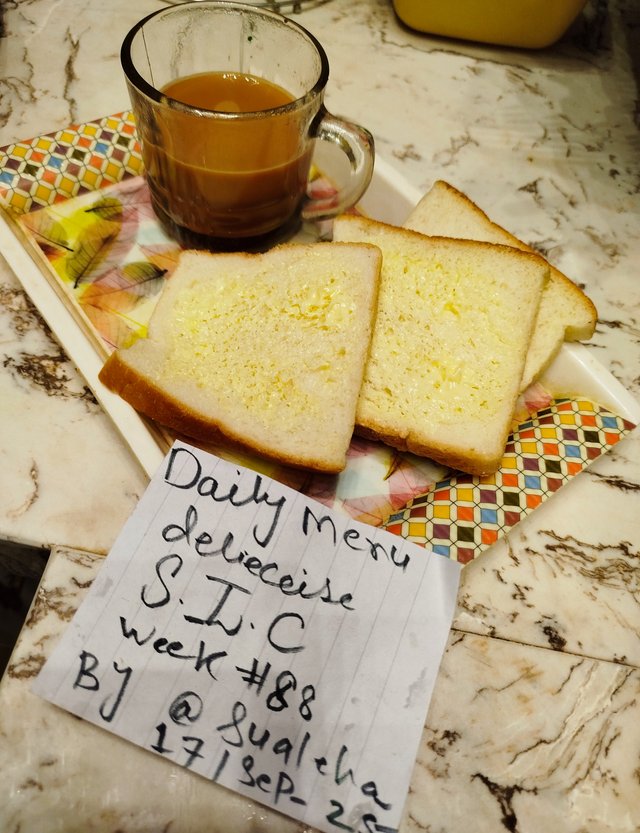 Daily Menu
delieceise
S.I.C
week #88
By @ Sualeha
17/Sep-25